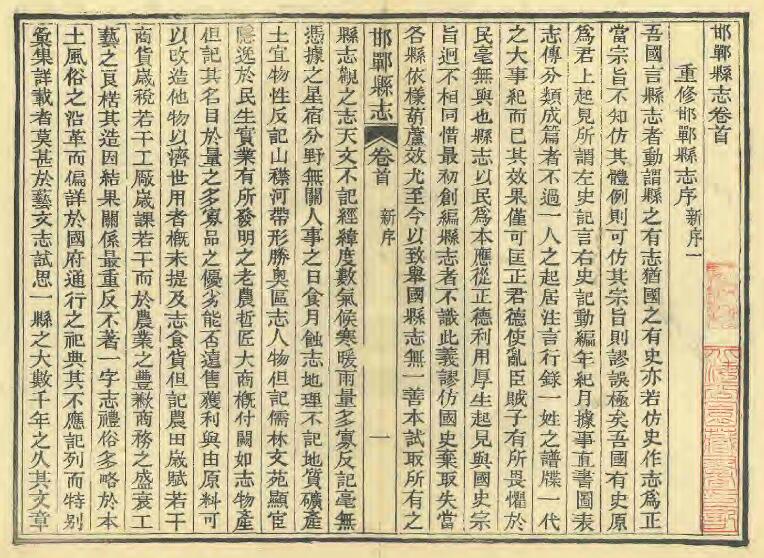 邯鄲縣志卷首
重修邯鄲縣志序 新序一
吾國言縣志者動謂縣之有志猶國之有史亦若仿史作志爲正
當宗旨不知仿其體例則可仿其宗旨則謬誤極矣吾國有史原
爲君上起見所謂左史記言右史記動編年紀月據事直書圖表
志傳分類成篇者不過一人之起居注言行錄一姓之譜牒一代
之大事紀而已其效果僅可匡正君德使亂臣賊子有所畏懼於
民毫無與也縣志以民爲本應從正德利用厚生起見與國史宗
旨迥不相同惜最初創編縣志者不識此義謬仿國史棄取失當
各縣依樣葫蘆效尤至今以致舉國縣志無一善本試取所有之
邯鄲縣志 卷首 新序 一
縣志觀之志天文不記經緯度數氣候寒暖雨量多寡反記毫無
憑據之星宿分野無關人事之日食月蝕志地理不記地質礦產
土宜物性反記山襟河帶形勝奧區志人物但記儒林文苑顯宦
隱逸於民生實業有所發明之老農哲匠大商概付闕如志物產
但記其名目於量之多寡品之優劣能否遠售獲利與由原料可
以改造他物以濟世用者概未提及志食貨但記農田歲賦若干
商貨歲稅若干工廠歲課若干而於農業之豐歉商務之盛衰工
藝之良楛其造因結果關係最重反不著一字志禮俗多略於本
土風俗之沿革而偏詳於國府通行之祀典其不應記列而特別
彙集詳載者莫甚於藝文志試思一縣之大數千年之久其文章